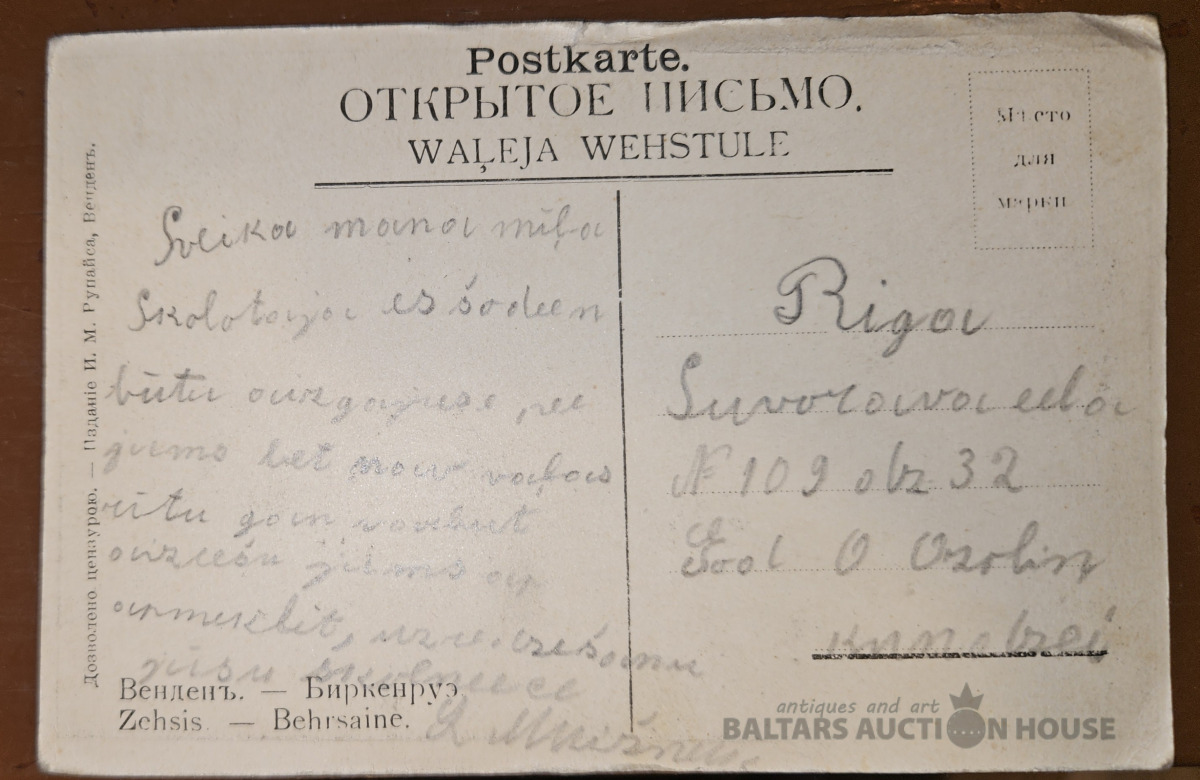 Postkarte.
ОТКРЫТОЕ ПИСЬМО.
WAĻEJA WEHSTULE
Мѣсто
для
марки
Дозволено цензурою. — Изданіе И. М. Рупайса, Венденъ.
Sveika mana miļa
Skolotaja es śodeen
būtu aizgajuse pee
jums bet nav vaļas
rītu gan varbut
aizeeśu
jūsu skolneece
Riga
Suvorava eela
№ 109 dz 32
O Ozolin
kundzei
Венденъ. — Биркенруэ.
Zehsis. — Behrsaine.
antiques and art
BALTARS AUCTION HOUSE